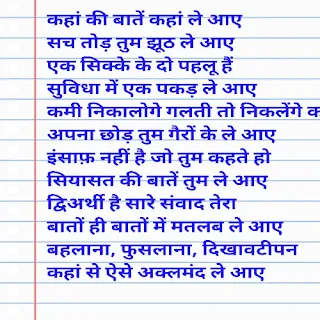 कहां की बातें कहां ले आए
सच तोड़ तुम झूठ ले आए
एक सिक्के के दो पहलू हैं
सुविधा में एक पकड़ ले आए
कमी निकालोगे गलती तो निकलेंगे
अपना छोड़ तुम गैरों के ले आए
इंसाफ़ नहीं है जो तुम कहते हो
सियासत की बातें तुम ले आए
द्विअर्थी है सारे संवाद तेरा
बातों ही बातों में मतलब ले आए
बहलाना, फुसलाना, दिखावटीपन
कहां से ऐसे अक्लमंद ले आए